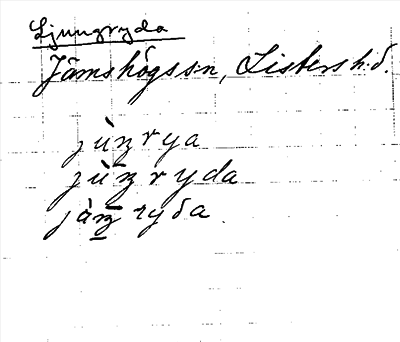 Ljungryda
Jämshögs sn, Listers h:d.
jùŋrya
jùŋryda
jàŋryda